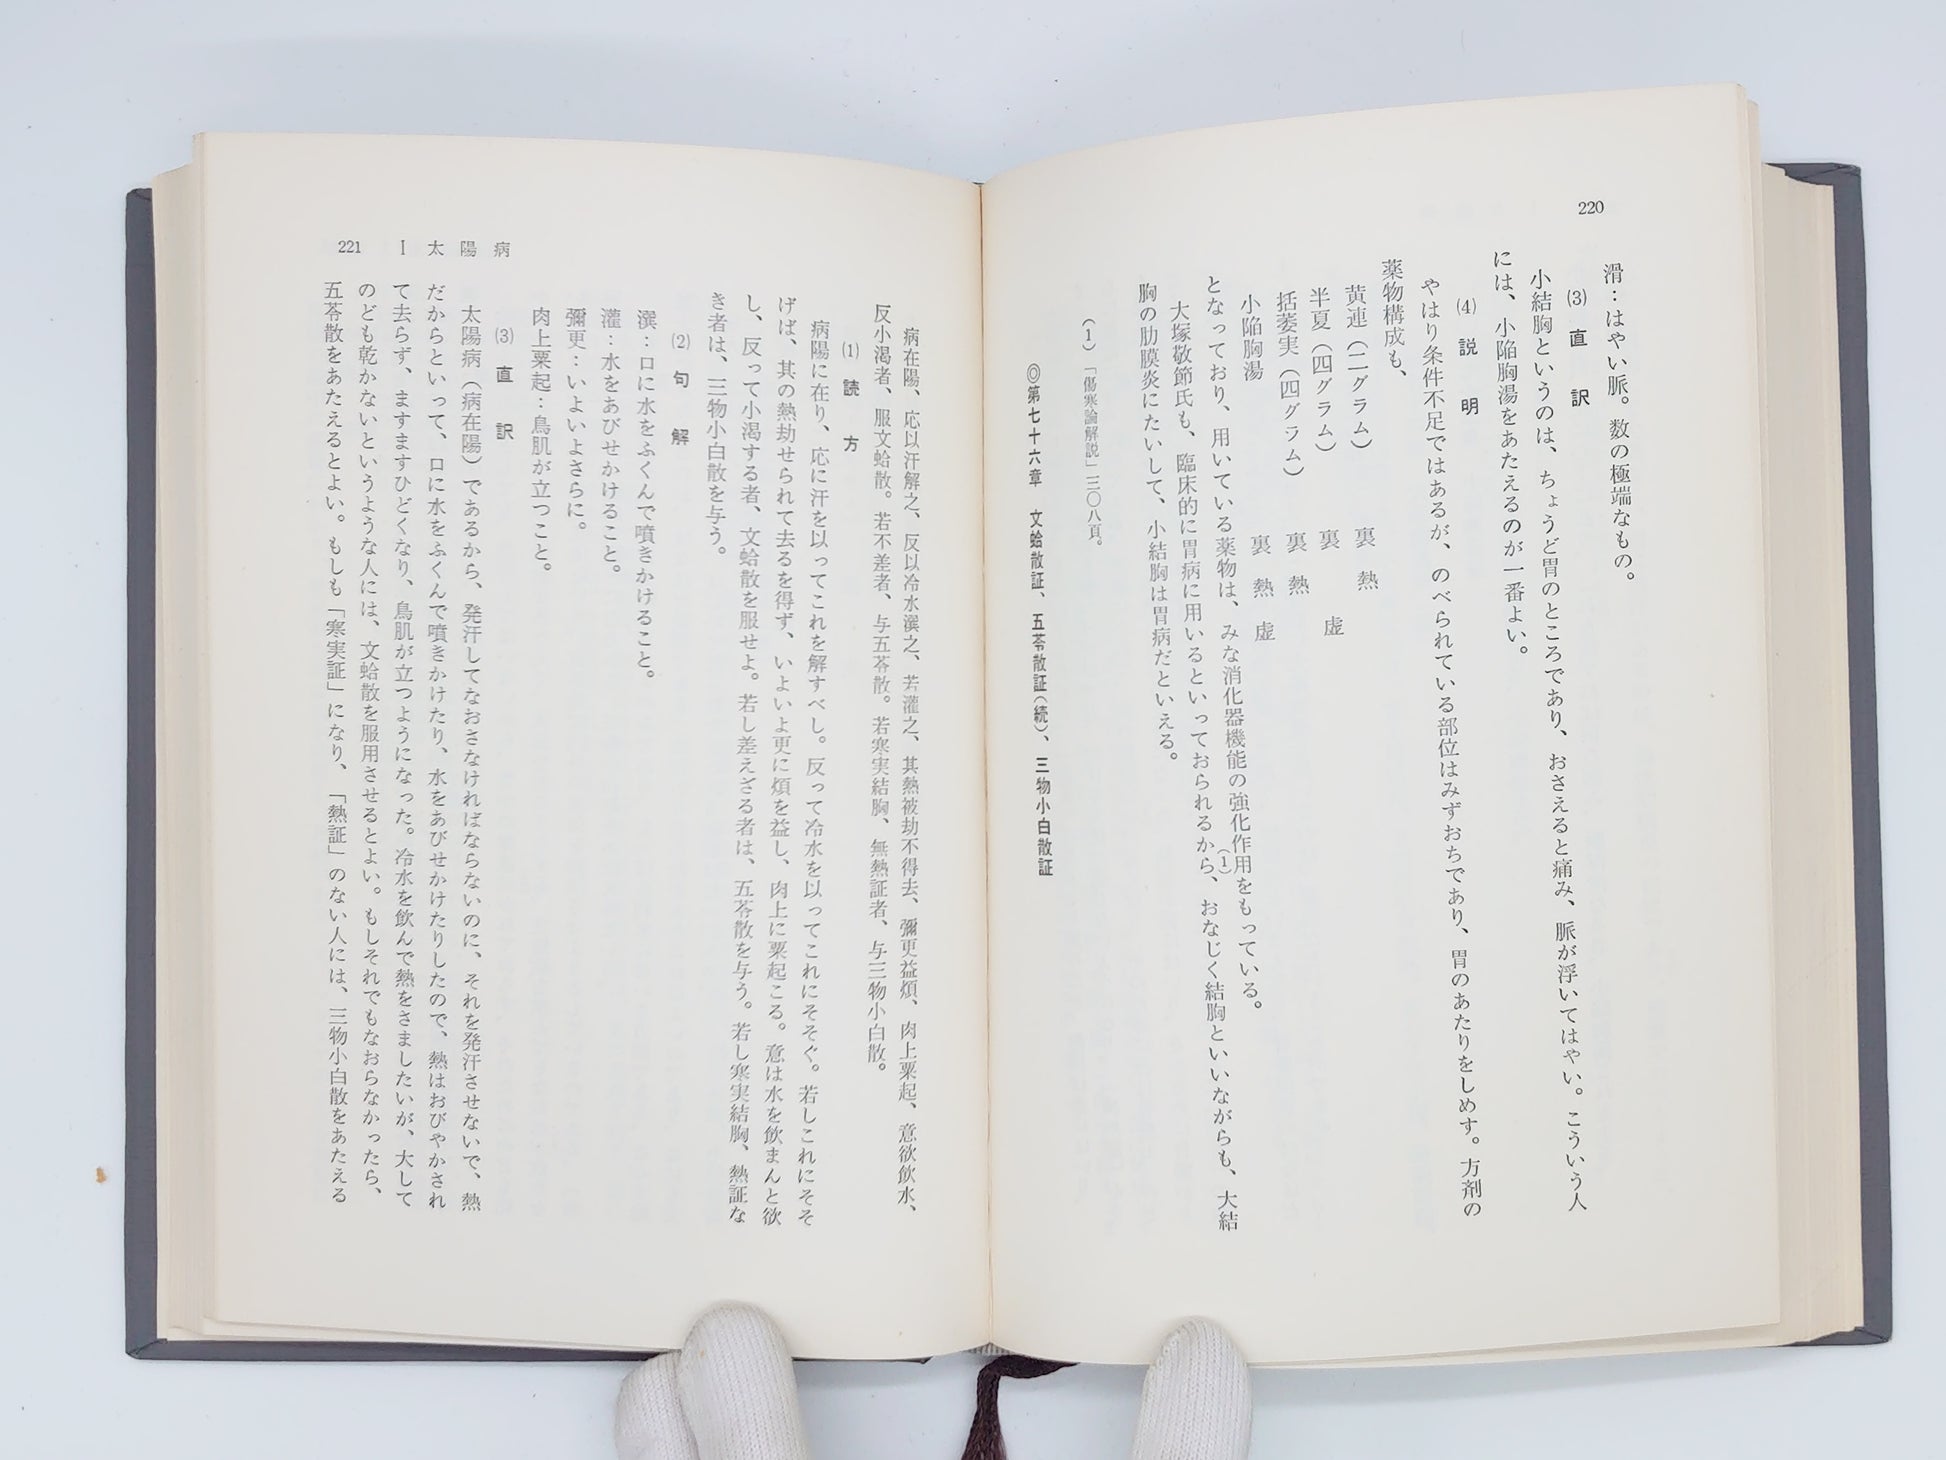 220
滑：はやい脈。数の極端なもの。
(3) 直訳
小結胸というのは、ちょうど胃のところであり、おさえると痛み、脈が浮いてはやい。こういう人
には、小陥胸湯をあたえるのが一番よい。
(4) 説明
やはり条件不足ではあるが、のべられている部位はみずおちであり、胃のあたりをしめす。方剤の
薬物構成も、
黄連（二グラム） 裏熱
半夏（四グラム） 裏 虚
括蔞実（四グラム） 裏熱
小陥胸湯 裏熱虚
となっており、用いている薬物は、みな消化器機能の強化作用をもっている。
大塚敬節氏も、臨床的に胃病に用いるといっておられる(1)から、おなじく結胸といいながらも、大結
胸の肋膜炎にたいして、小結胸は胃病だといえる。
(1)「傷寒論解説」三〇八頁。
◎第七十六章 文蛤散証、五苓散証(続)、三物小白散証
221 Ⅰ 太陽病
病在陽、応以汗解之、反以冷水潠之、若灌之、其熱被劫不得去、彌更益煩、肉上粟起、意欲飲水、
反小渇者、服文蛤散。若不差者、与五苓散。若寒実結胸、無熱証者、与三物小白散。
(1) 読方
病陽に在り、応に汗を以ってこれを解すべし。反って冷水を以ってこれにそそぐ。若しこれにそそ
げば、其の熱劫せられて去るを得ず、いよいよ更に煩を益し、肉上に粟起こる。意は水を飲まんと欲
し、反って小渇する者、文蛤散を服せよ。若し差えざる者は、五苓散を与う。若し寒実結胸、熱証な
き者は、三物小白散を与う。
(2) 句解
潠：口に水をふくんで噴きかけること。
灌：水をあびせかけること。
彌更：いよいよさらに。
肉上粟起：鳥肌が立つこと。
(3) 直訳
太陽病（病在陽）であるから、発汗してなおさなければならないのに、それを発汗させないで、熱
だからといって、口に水をふくんで噴きかけたり、水をあびせかけたりしたので、熱はおびやかされ
て去らず、ますますひどくなり、鳥肌が立つようになった。冷水を飲んで熱をさましたいが、大して
のども乾かないというような人には、文蛤散を服用させるとよい。もしそれでもなおらなかったら、
五苓散をあたえるとよい。もしも「寒実証」になり、「熱証」のない人には、三物小白散をあたえる